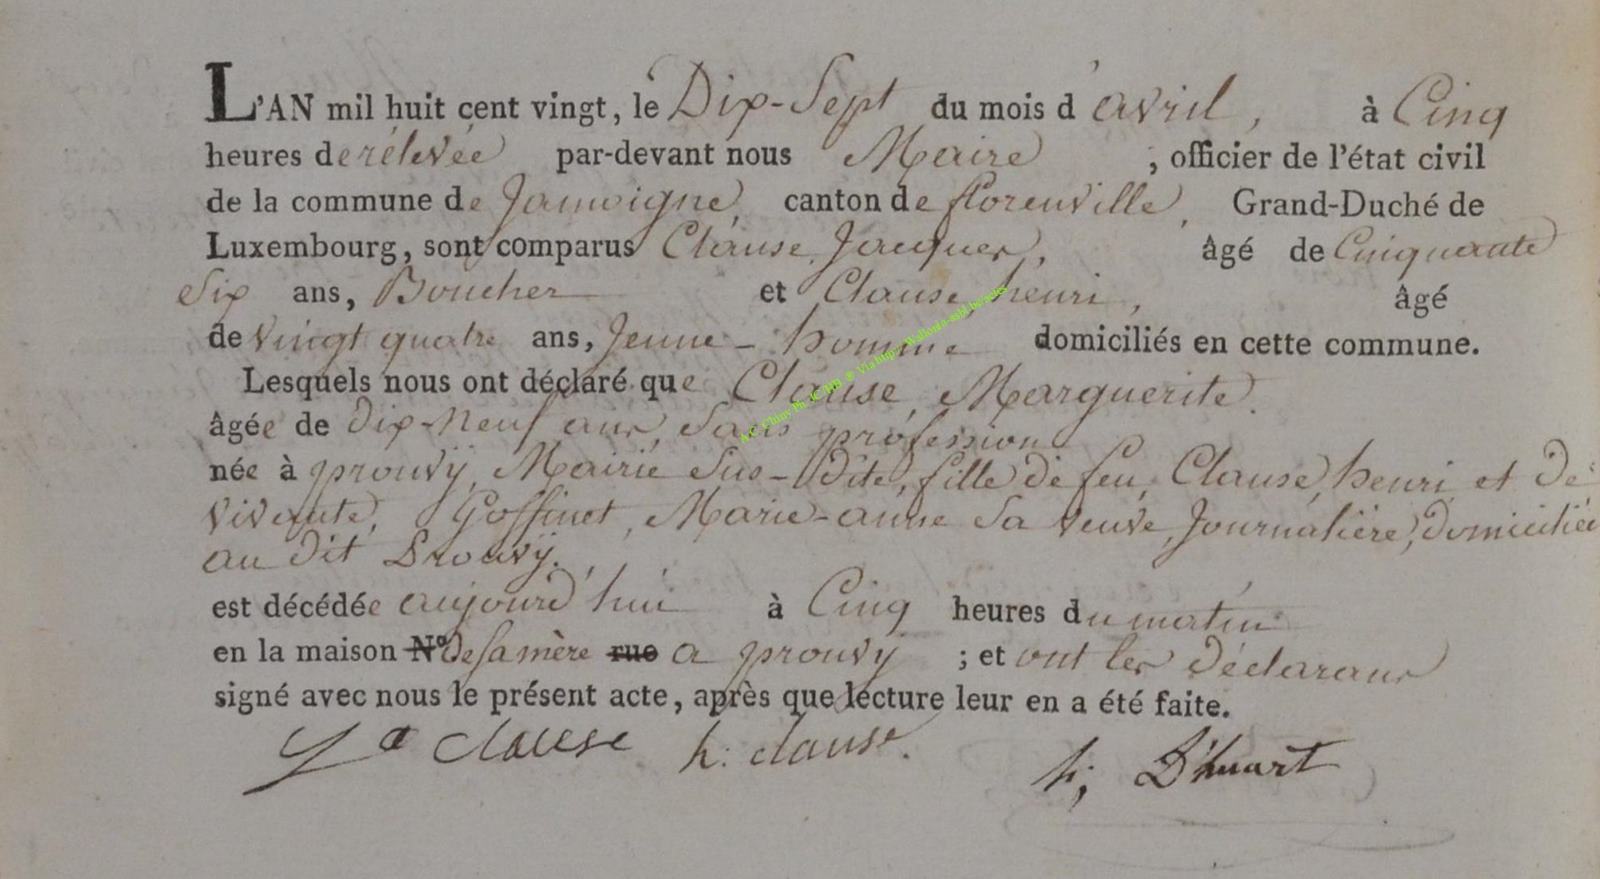 L'AN mil huit cent vingt, le Dix-Sept du mois d'avril, à Cinq
heures de rélevée par-devant nous Maire, officier de l'état civil
de la commune de Jamoigne, canton de florenville, Grand-Duché de
Luxembourg, sont comparus Clause, Jacques, âgé de Cinquante
Six ans, Boucher et Clause, henri, âgé
de vingt quatre ans, Jeune-homme domiciliés en cette commune.
Lesquels nous ont déclaré que Clause, Marguerite.
âgée de dix-neuf ans, Sans profession
née à prouvÿ, Mairie Sus-dite, fille de feu, Clause, henri et De
vivante, Goffinet, Marie-anne Sa veuve, Journalière, domiciliée
au dit Prouvÿ.
est décédée aujourd'hui à Cinq heures du matin
en la maison N° de sa mère rue a prouvÿ ; et ont les déclarans
signé avec nous le présent acte, après que lecture leur en a été faite.
clause h: clause. h; D'huart